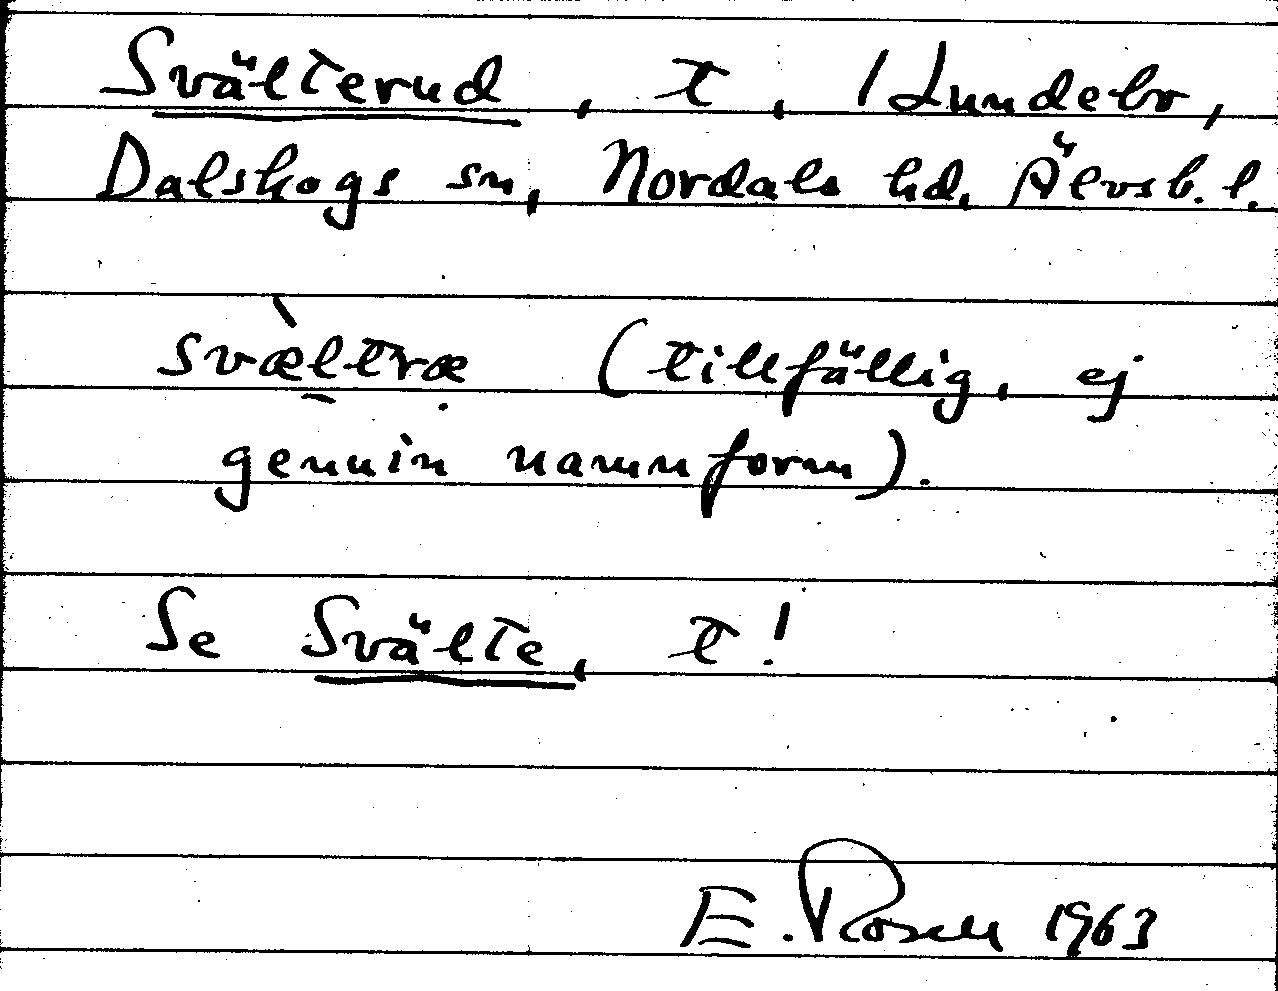 Svälterud, t, Hundebo,
Dalskogs sn, Nordals hd, Älvsb. l.
svæ̀ltræ (tillfällig, ej
genuin namnform).
Se Svälte, t!
E. Rosell 1963